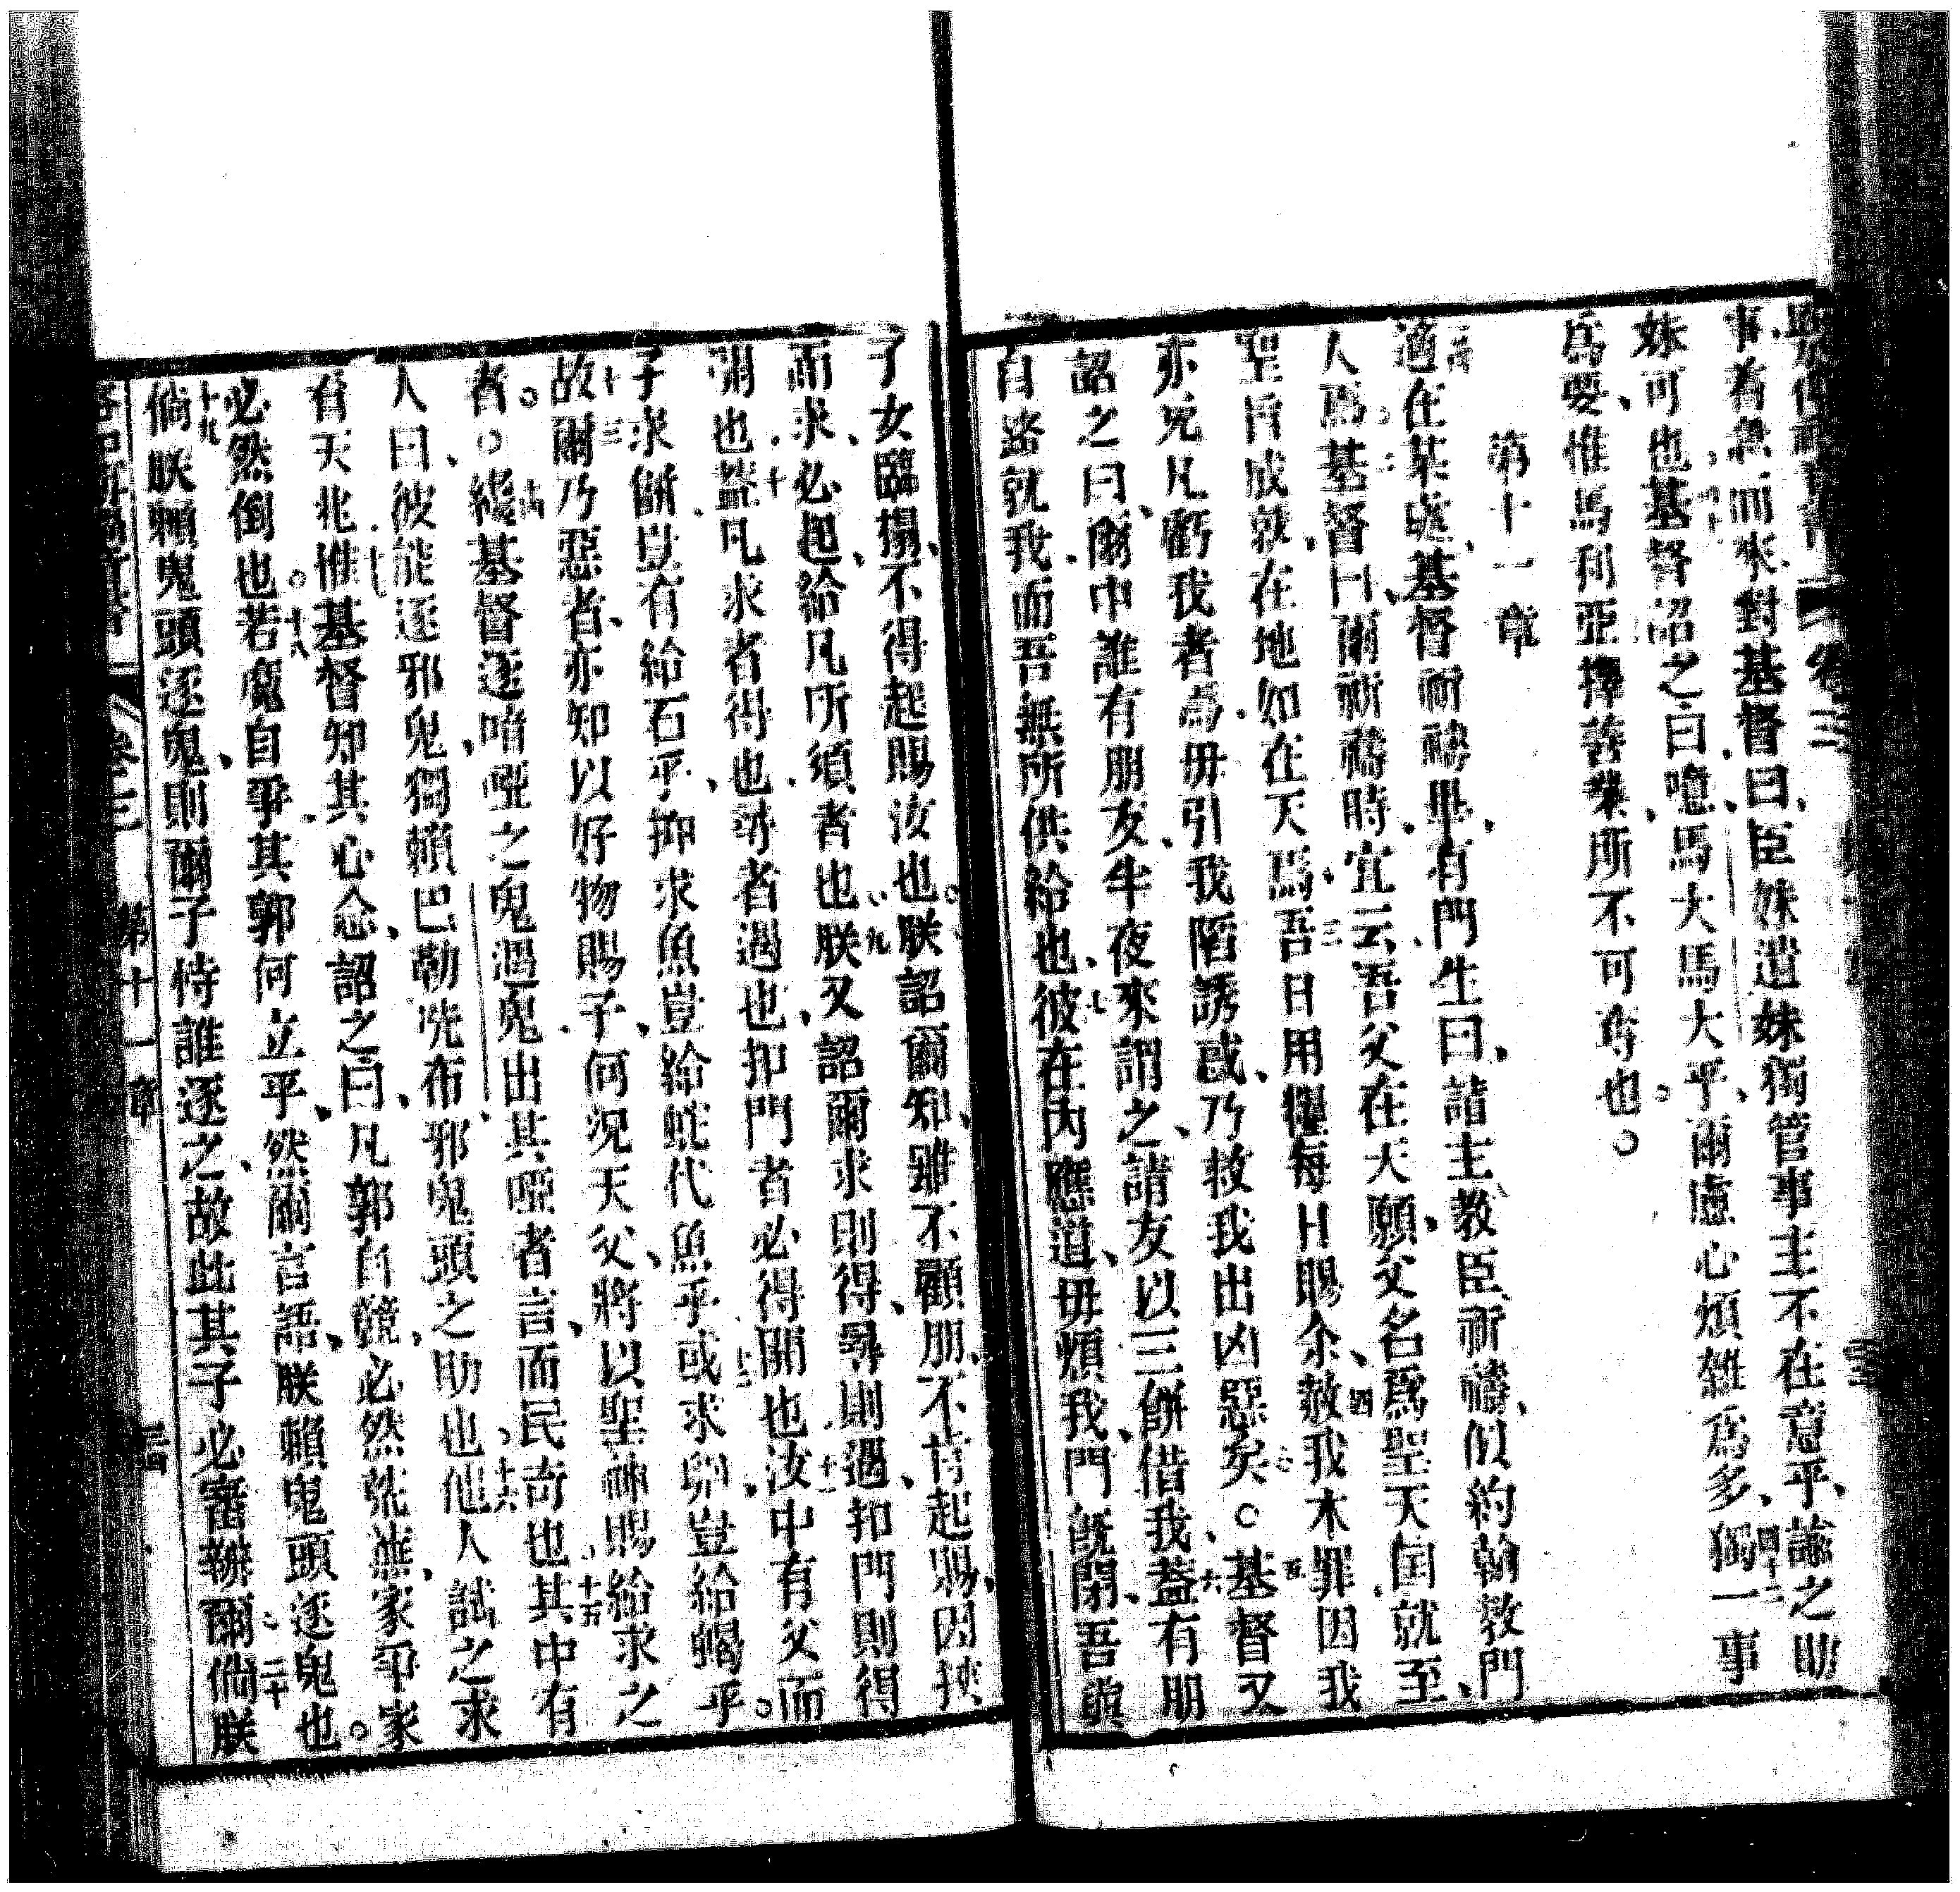 事着急而來對基督曰、臣妹遺妹獨管事主不在意乎、諭之助
妹可也基督詔之曰噫馬大馬大乎、爾慮心煩雜爲多、獨一事
爲要、惟馬利亞擇善業、所不可奪也。
第十一章
適在某處、基督祈禱畢、有門生曰、請主教臣祈禱、似約翰教門
人焉基督曰、爾祈禱時、宜云吾父在天、願父名爲聖天国就至、
聖旨成就、在地如在天焉、吾日用糧每日賜余、赦我本罪因我
亦免凡虧我者焉毋引我陷誘惑、乃救我出凶惡矣。基督又
詔之曰、爾中誰有朋友、半夜來謂之、請友以三餅借我、蓋有朋
自路就我而吾無所供給也、彼在內應道、毋煩我、門旣閉、吾與
子女臨榻、不得起賜汝也。朕詔爾知、雖不顧朋、不肯起賜、因挾
而求、必起、給凡所須者也、朕又詔爾求則得、尋則遇、扣門則得
開也蓋凡求者得也尋者遇也、扣門者必得開也汝中有父而
子求餅豈有給石乎、抑求魚豈給蛇代魚乎或求卵豈給蝎乎。
故爾乃惡者、亦知以好物賜子、何況天父、將以聖神賜給求之
者。○纔基督逐喑啞之鬼遇鬼出其啞者言、而民奇也其中有
人曰、彼能逐邪鬼、獨賴巴勒洗布邪鬼頭之助也他人試之求
看天兆惟基督知其心念、詔之曰、凡郭自競、必然荒蕪、家爭家
必然倒也。若魔自爭其郭何立乎、然爾言語、朕賴鬼頭逐鬼也。
倘朕賴鬼頭逐鬼、則爾子恃誰逐之、故此其子必審辦爾倘朕
卷三 第十一章